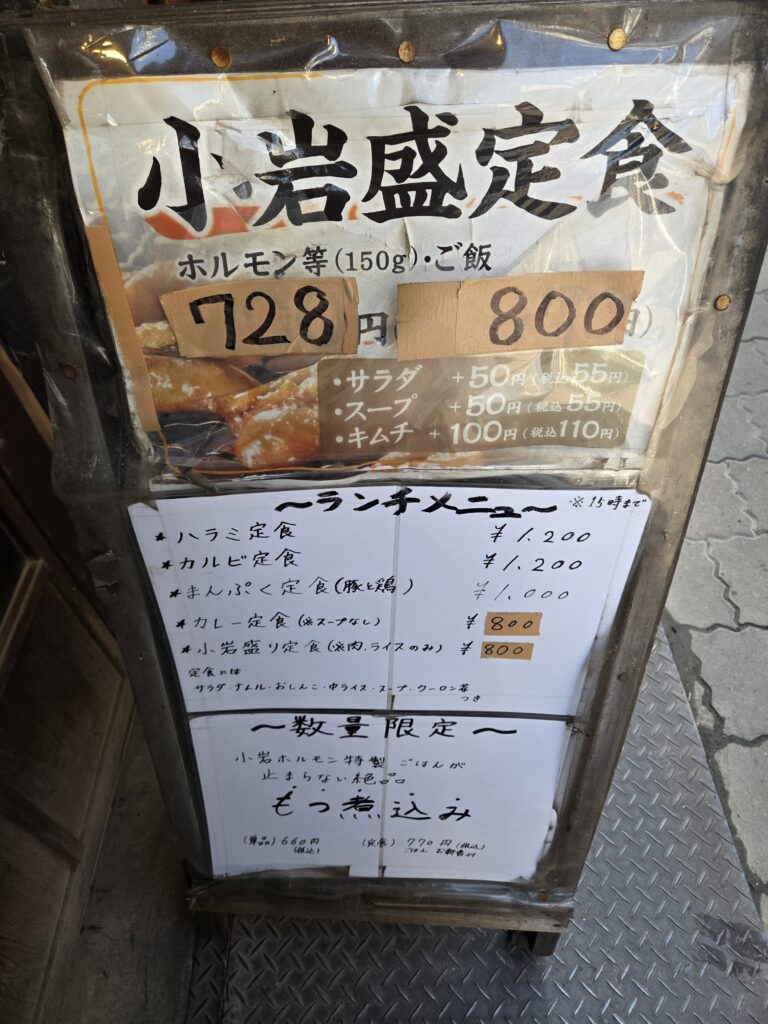 小岩盛定食
ホルモン等(150g)・ご飯
728円( 800円)
・サラダ +50円(税込55円)
・スープ +50円(税込55円)
・キムチ +100円(税込110円)
～ランチメニュー～ ※15時まで
★ハラミ定食 ¥1,200
★カルビ定食 ¥1,200
★まんぷく定食(豚と鶏) ¥1,000
★カレー定食(※スープなし) ¥800
★小岩盛り定食(※肉、ライスのみ) ¥800
定食には
サラダ・ナムル・おしんこ・中ライス・スープ・ウーロン茶
つき
～数量限定～
小岩ホルモン特製 ごはんが
止まらない絶品
もつ煮込み
(単品)660円 (定食)770円(税込)
(税込) ごはん お新香付